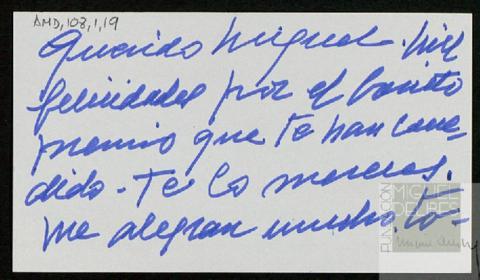 AMD,108,1,19
Querido Miguel. Mil
felicidades por el bonito
premio que te han conce-
dido - Te lo mereces.
Me alegran mucho to-
FUNDACIÓN
MIGUEL
DELIBES